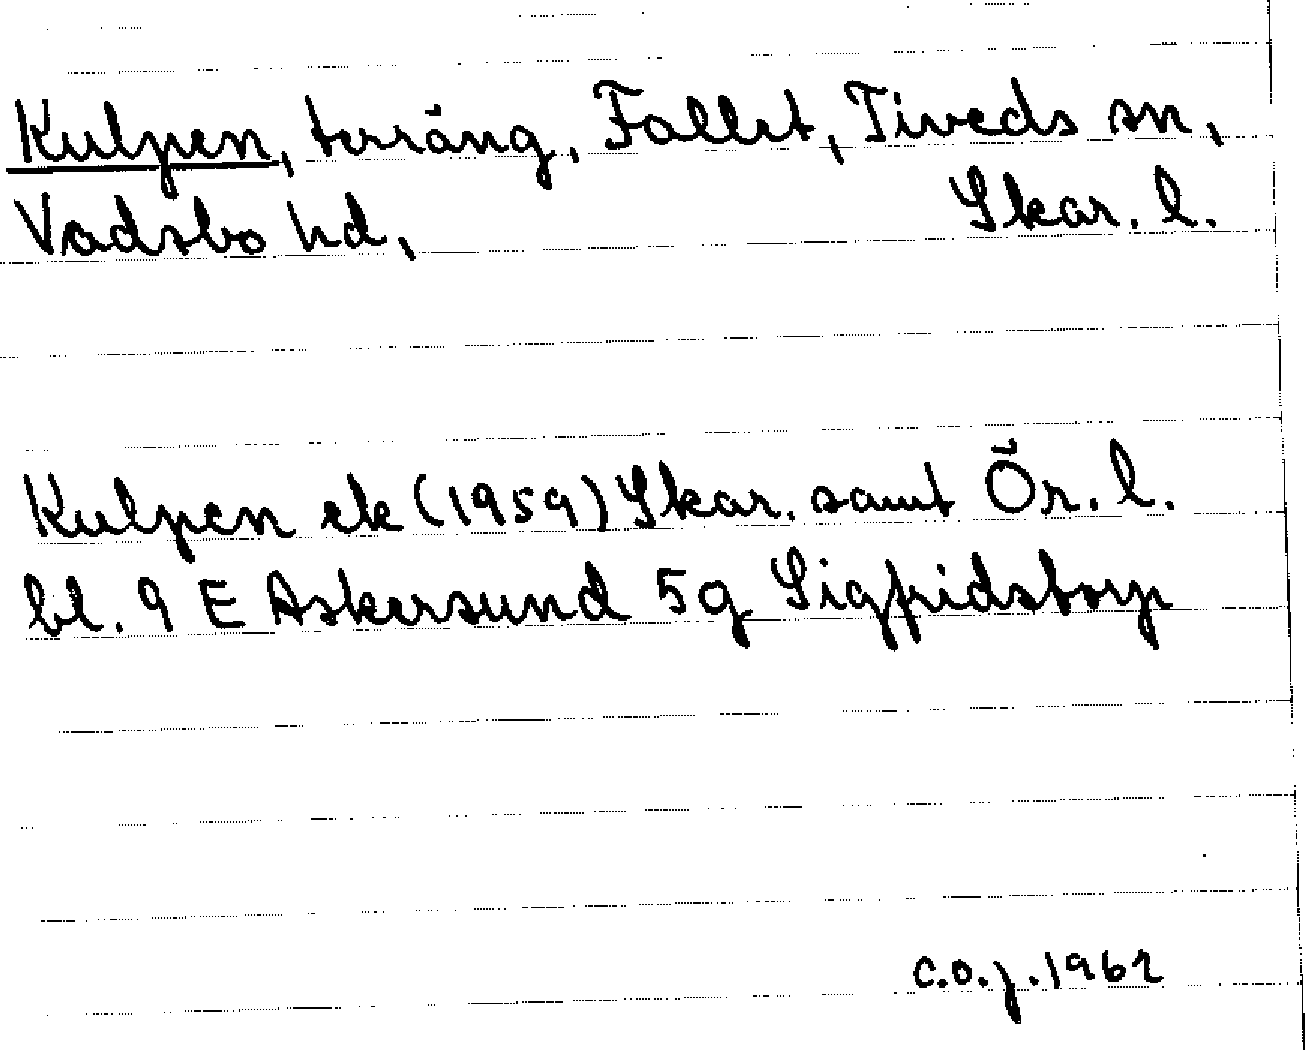 Kulpen, terräng, Fallet, Tiveds sn,
Vadsbo hd, Skar. l.
Kulpen ek (1959) Skar. samt Ör. l.
bl. 9 E Askersund 5g Sigfridstorp
C.O.J. 1962